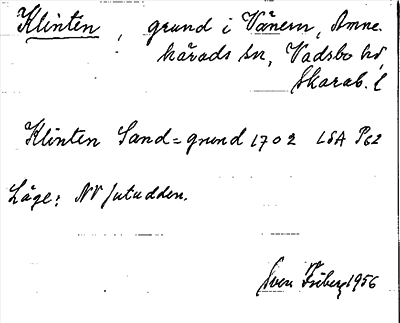 Klinten, grund i Vänern, Amne-
härads sn, Vadsbo hd,
Skarab. l
Klinten Sand=grund 1702 LSA P62
Läge: NV /utudden.
Sven Friberg 1956